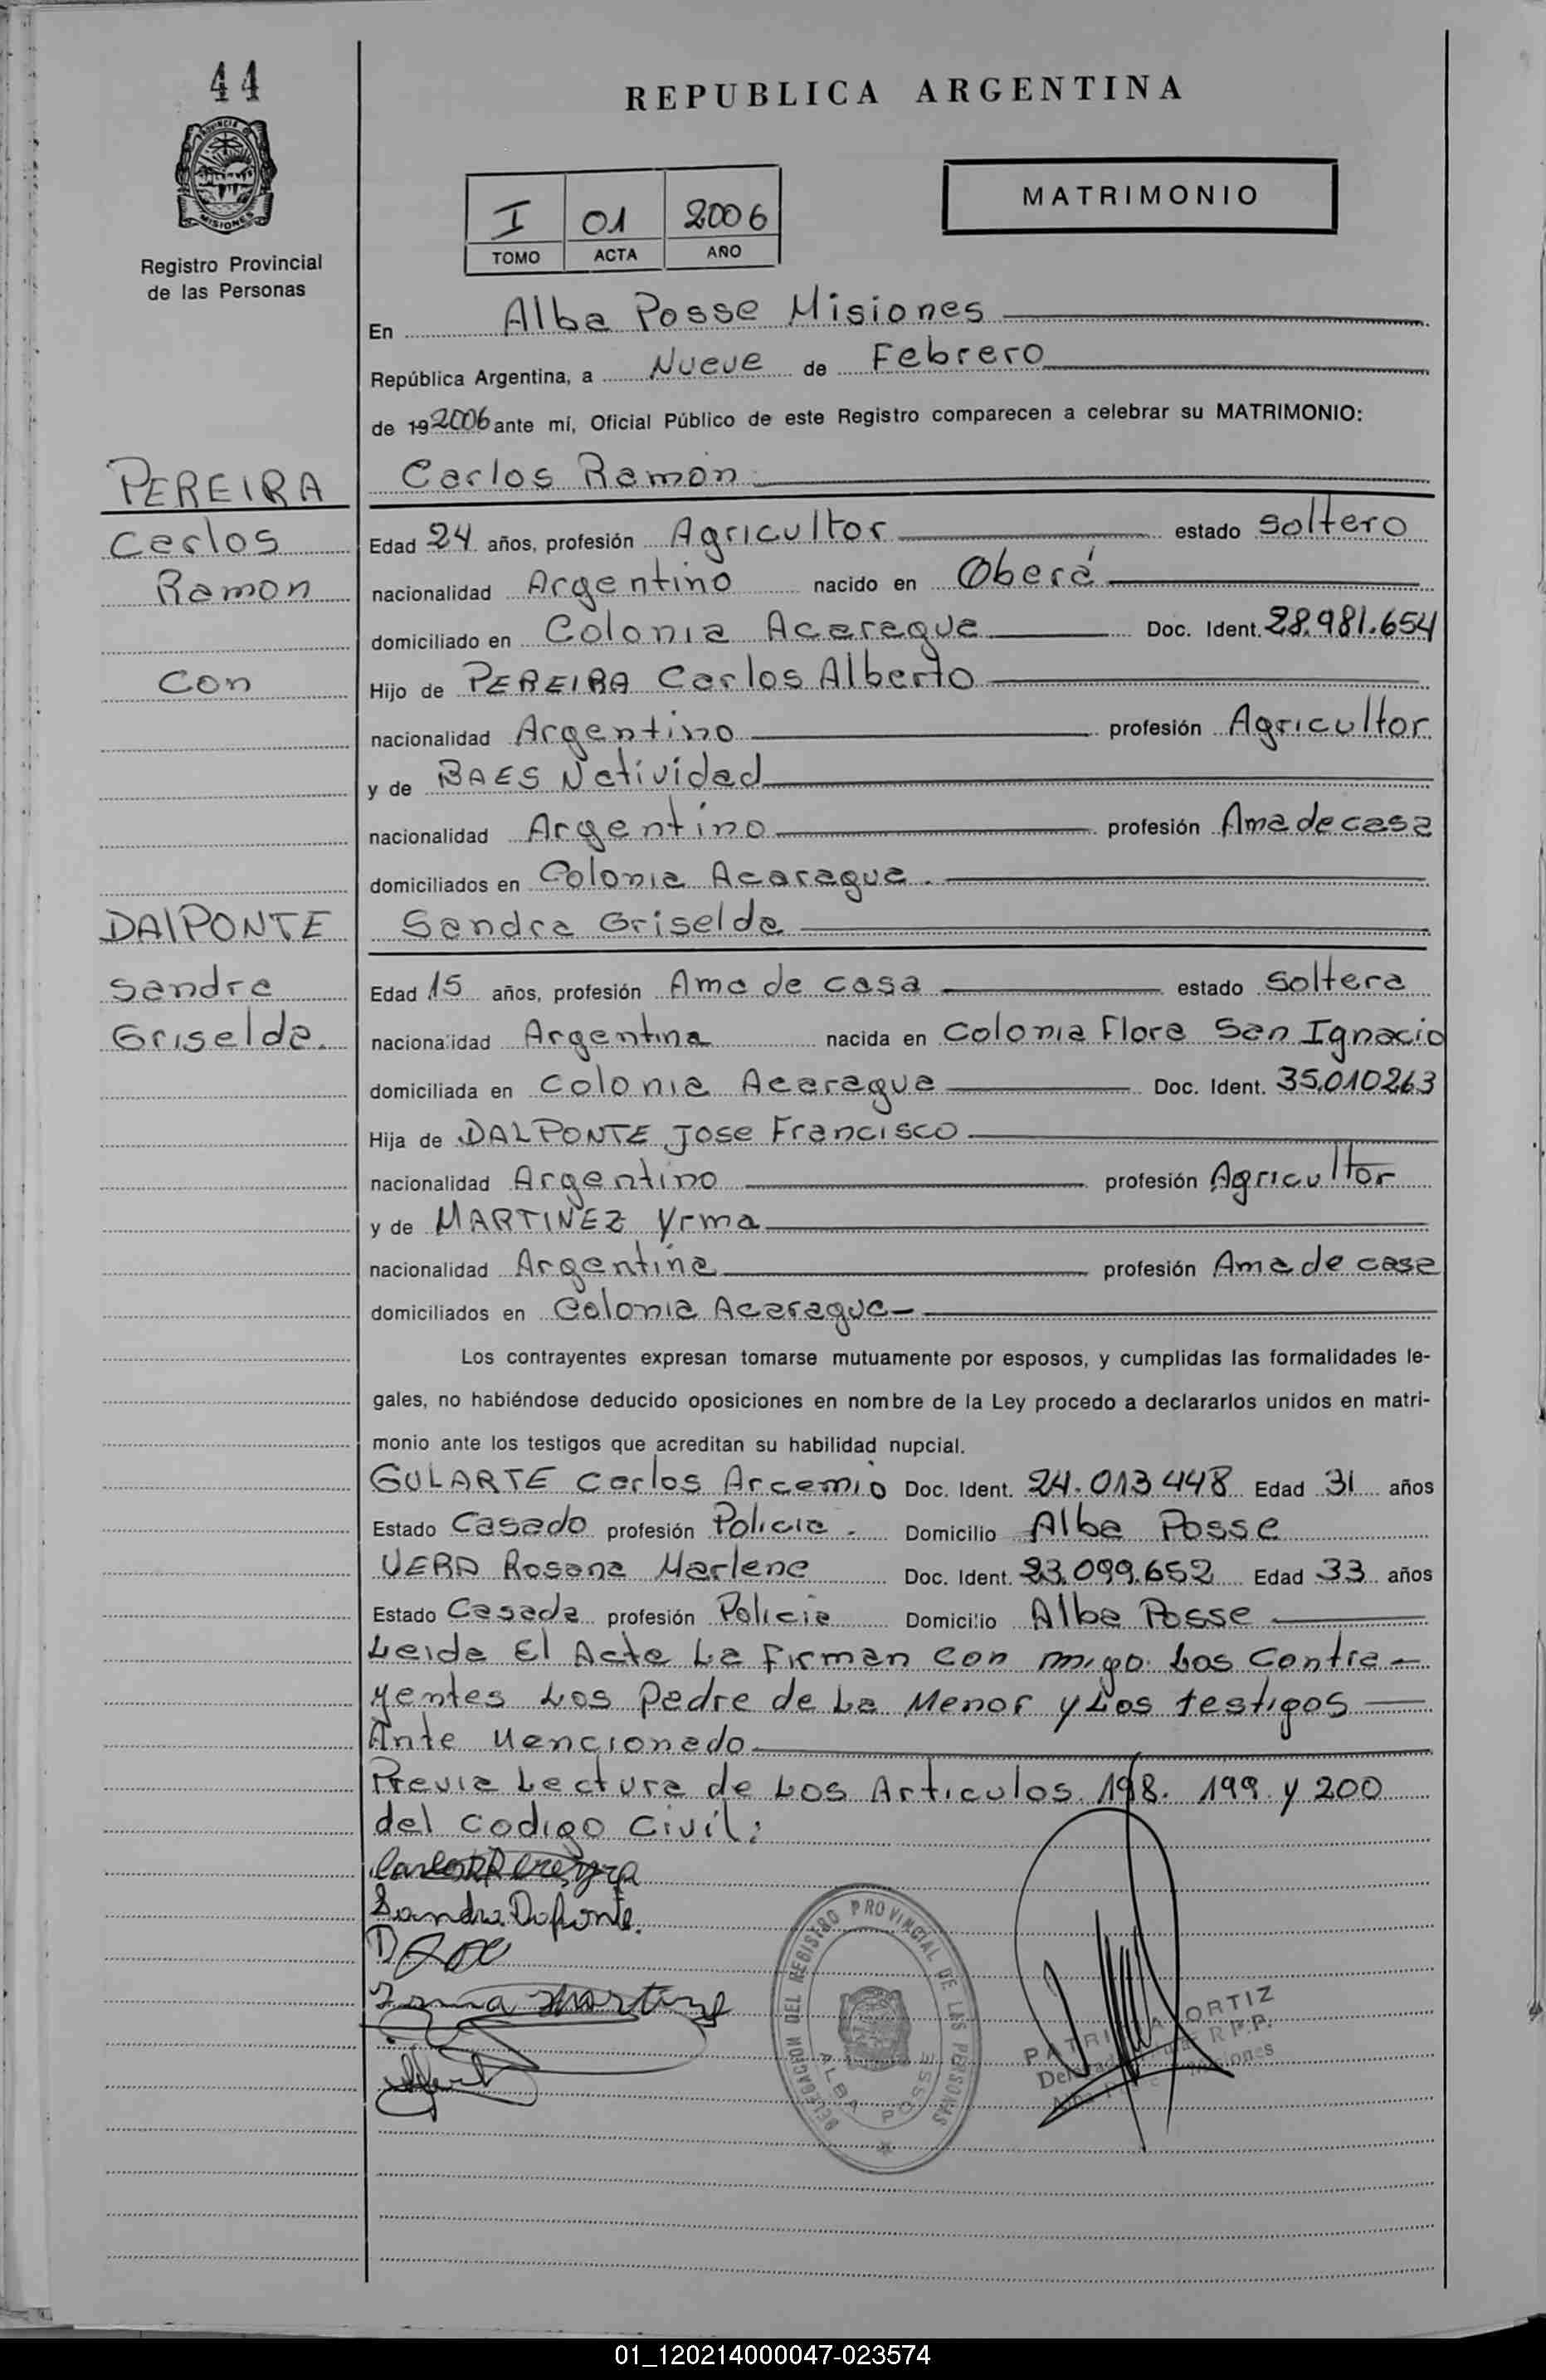 44
REPUBLICA ARGENTINA
MATRIMONIO
I 01 2006
TOMO ACTA AÑO
PROVINCIA DE
MISIONES
Registro Provincial
de las Personas
En Alba Posse Misiones
República Argentina, a Nueve de Febrero
de 192006 ante mí, Oficial Público de este Registro comparecen a celebrar su MATRIMONIO:
PEREIRA Carlos Ramón
Carlos Edad 24 años, profesión Agricultor estado Soltero
Ramon nacionalidad Argentino nacido en Oberá
domiciliado en Colonia Acaragua Doc. Ident. 28.981.654
Con Hijo de PEREIRA Carlos Alberto
nacionalidad Argentino profesión Agricultor
y de BAES Natividad
nacionalidad Argentino profesión Ama de casa
domiciliados en Colonia Acaragua.
DAlPONTE Sandra Griselda
Sandra Edad 15 años, profesión Ama de casa estado Soltera
Griselda. nacionalidad Argentina nacida en Colonia Flora San Ignacio
domiciliada en Colonia Acaragua Doc. Ident. 35.010263
Hija de DALPONTE Jose Francisco
nacionalidad Argentino profesión Agricultor
y de MARTINEZ Yrma
nacionalidad Argentina profesión Ama de casa
domiciliados en Colonia Acaragua
Los contrayentes expresan tomarse mutuamente por esposos, y cumplidas las formalidades le-
gales, no habiéndose deducido oposiciones en nombre de la Ley procedo a declararlos unidos en matri-
monio ante los testigos que acreditan su habilidad nupcial.
GULARTE Carlos Arcemio Doc. Ident. 24.013448 Edad 31 años
Estado Casado profesión Policia. Domicilio Alba Posse
VERA Rosana Marlene Doc. Ident. 23.099.652 Edad 33 años
Estado Casada profesión Policia Domicilio Alba Posse
Leida El Acta La Firman con migo Los Contra-
yentes Los Padre de La Menor y Los testigos
Ante Mencionado
Previa Lectura de Los Articulos 198. 199 y 200
del Codigo Civil:
Sandra Dalponte.
Irma Martinez
DELEGACION DEL REGISTRO PROVINCIAL DE LAS PERSONAS
ALBA POSSE
PATRICIA ORTIZ
R.P.P.
Misiones
01_120214000047-023574